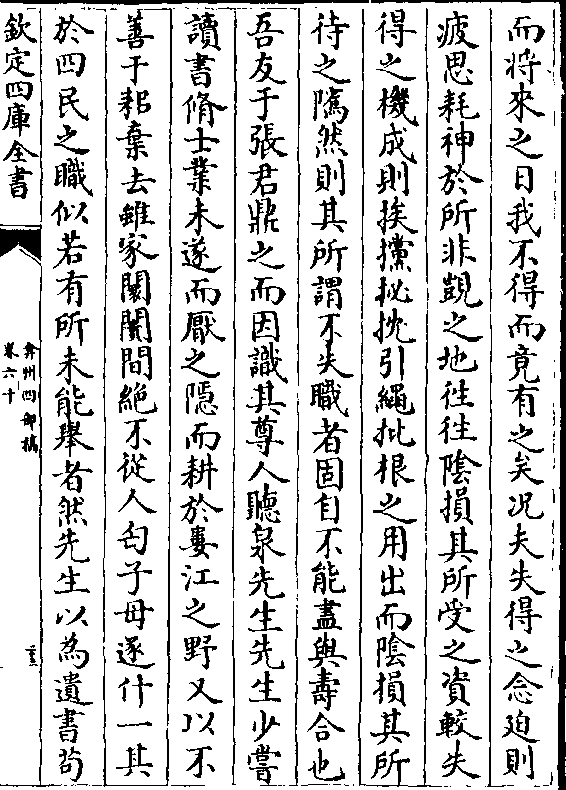 而將來之日我不得而竟有之矣况夫失得之念迫則
疲思耗神於所非覬之地徃徃陰損其所受之資較失
得之機成則挨攩挻抌引繩批根之用出而陰損其所
待之隲然則其所謂不失職者固自不能盡與壽合也
吾友于張君鼎之而因識其尊人聽泉先生先生少嘗
讀書脩士業未遂而厭之隠而耕於婁江之野又以不
善于耜棄去雖家闤闠間絶不從人匄子母逐什一其
於四民之職似若有所未能舉者然先生以為遺書茍
欽定四庫全書
弇州四部稿
卷六十